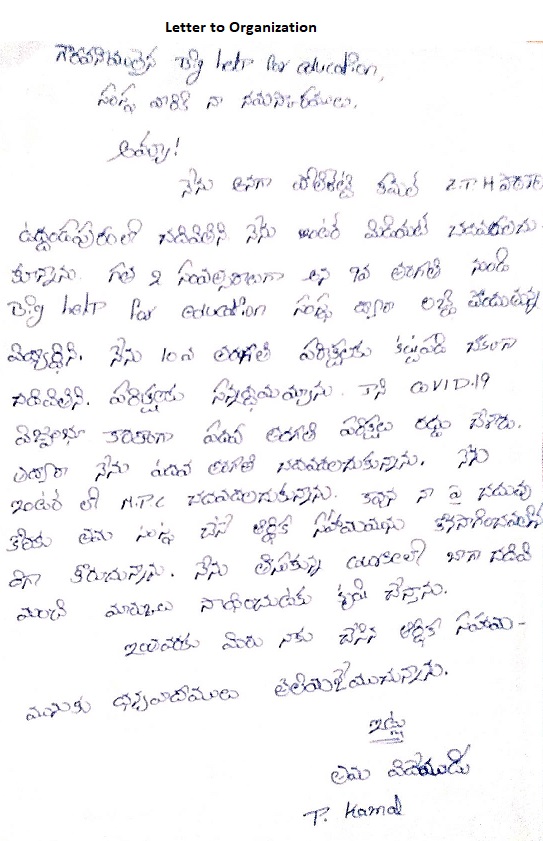 Letter to Organization
గౌరవనీయులైన big help for education,
సంస్థ వారికి నా నమస్కారములు.
అయ్యా!
నేను అనగా కమల్ Z.P.H పాఠశాల
ఉద్దండపురంలో చదివితిని నేను ఇంటర్ మీడియట్ చదవదలచు
కున్నాను. గత 2 సంవత్సరాలుగా అన 9వ తరగతి నుండి
Big help for education సంస్థ ద్వారా లబ్ది పొందుతున్న
విద్యార్థిని. నేను 10వ తరగతి పరీక్షలకు కష్టపడి
చదివితిని. పరీక్షలకు సన్నద్ధమయ్యాను. కానీ COVID-19
కారణంగా పదవ తరగతి పరీక్షలు రద్దు చేశారు.
తద్వారా నేను పదవ తరగతి నేను
ఇంటర్ లో M.P.C చదవదలచుకున్నాను. కావున నా పై చదువు
కొరకు తమ సంస్థ చేసే ఆర్థిక సహాయమును కొనసాగించవలసిన
దిగా కోరుచున్నాను. నేను తీసుకున్న courseలో బాగా చదివి
మంచి మార్కులు సాధించుటకు కృషి చేస్తాను.
ఇంతవరకు మీరు నాకు చేసిన ఆర్థిక సహాయ-
మునకు ధన్యవాదములు తెలియజేయుచున్నాను.
ఇట్లు
తమ విధేయుడు
T. Kamal